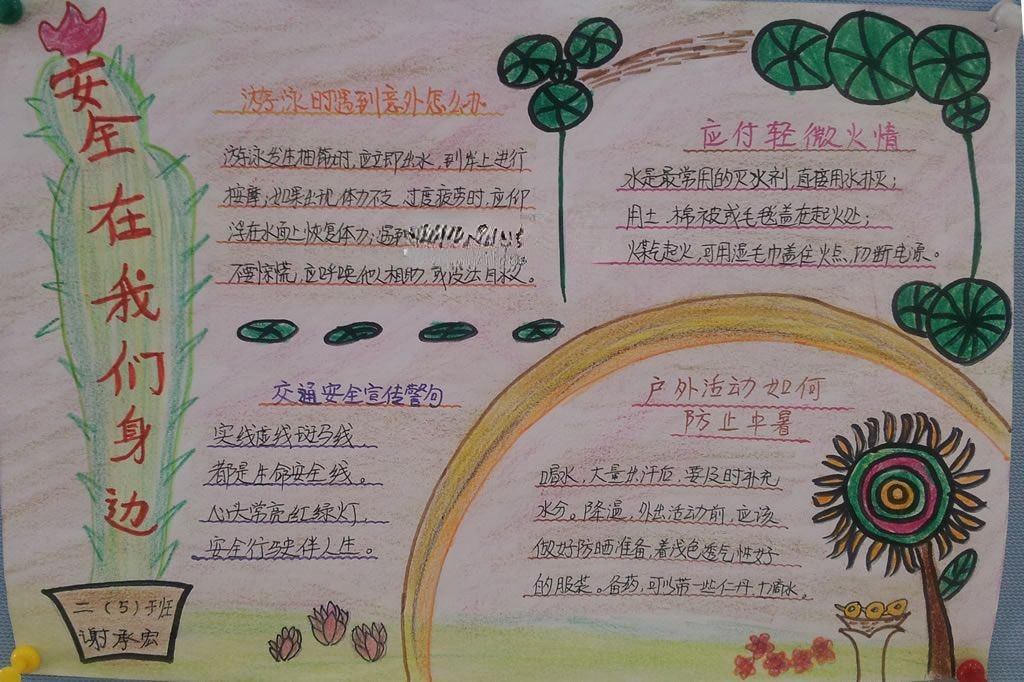 安全在我们身边
二（5）班
谢承宏
游泳时遇到意外怎么办
游泳发生抽筋时,应立即出水,到岸上进行
按摩;如果出现体力不支,过度疲劳时,应仰
浮在水面上恢复体力;遇到
不要惊慌,应呼唤他人相助,或设法自救。
应付轻微火情
水是最常用的灭火剂,直接用水扑灭;
用土、棉被或毛毯盖在起火处;
煤气起火,可用湿毛巾盖住火点,切断电源。
交通安全宣传警句
实线虚线斑马线
都是生命安全线。
心头常亮红绿灯,
安全行驶伴人生。
户外活动如何
防止中暑
喝水,大量出汗后,要及时补充
水分。降温,外出活动前,应该
做好防晒准备,着浅色透气性好
的服装。备药,可以带一些仁丹十滴水。